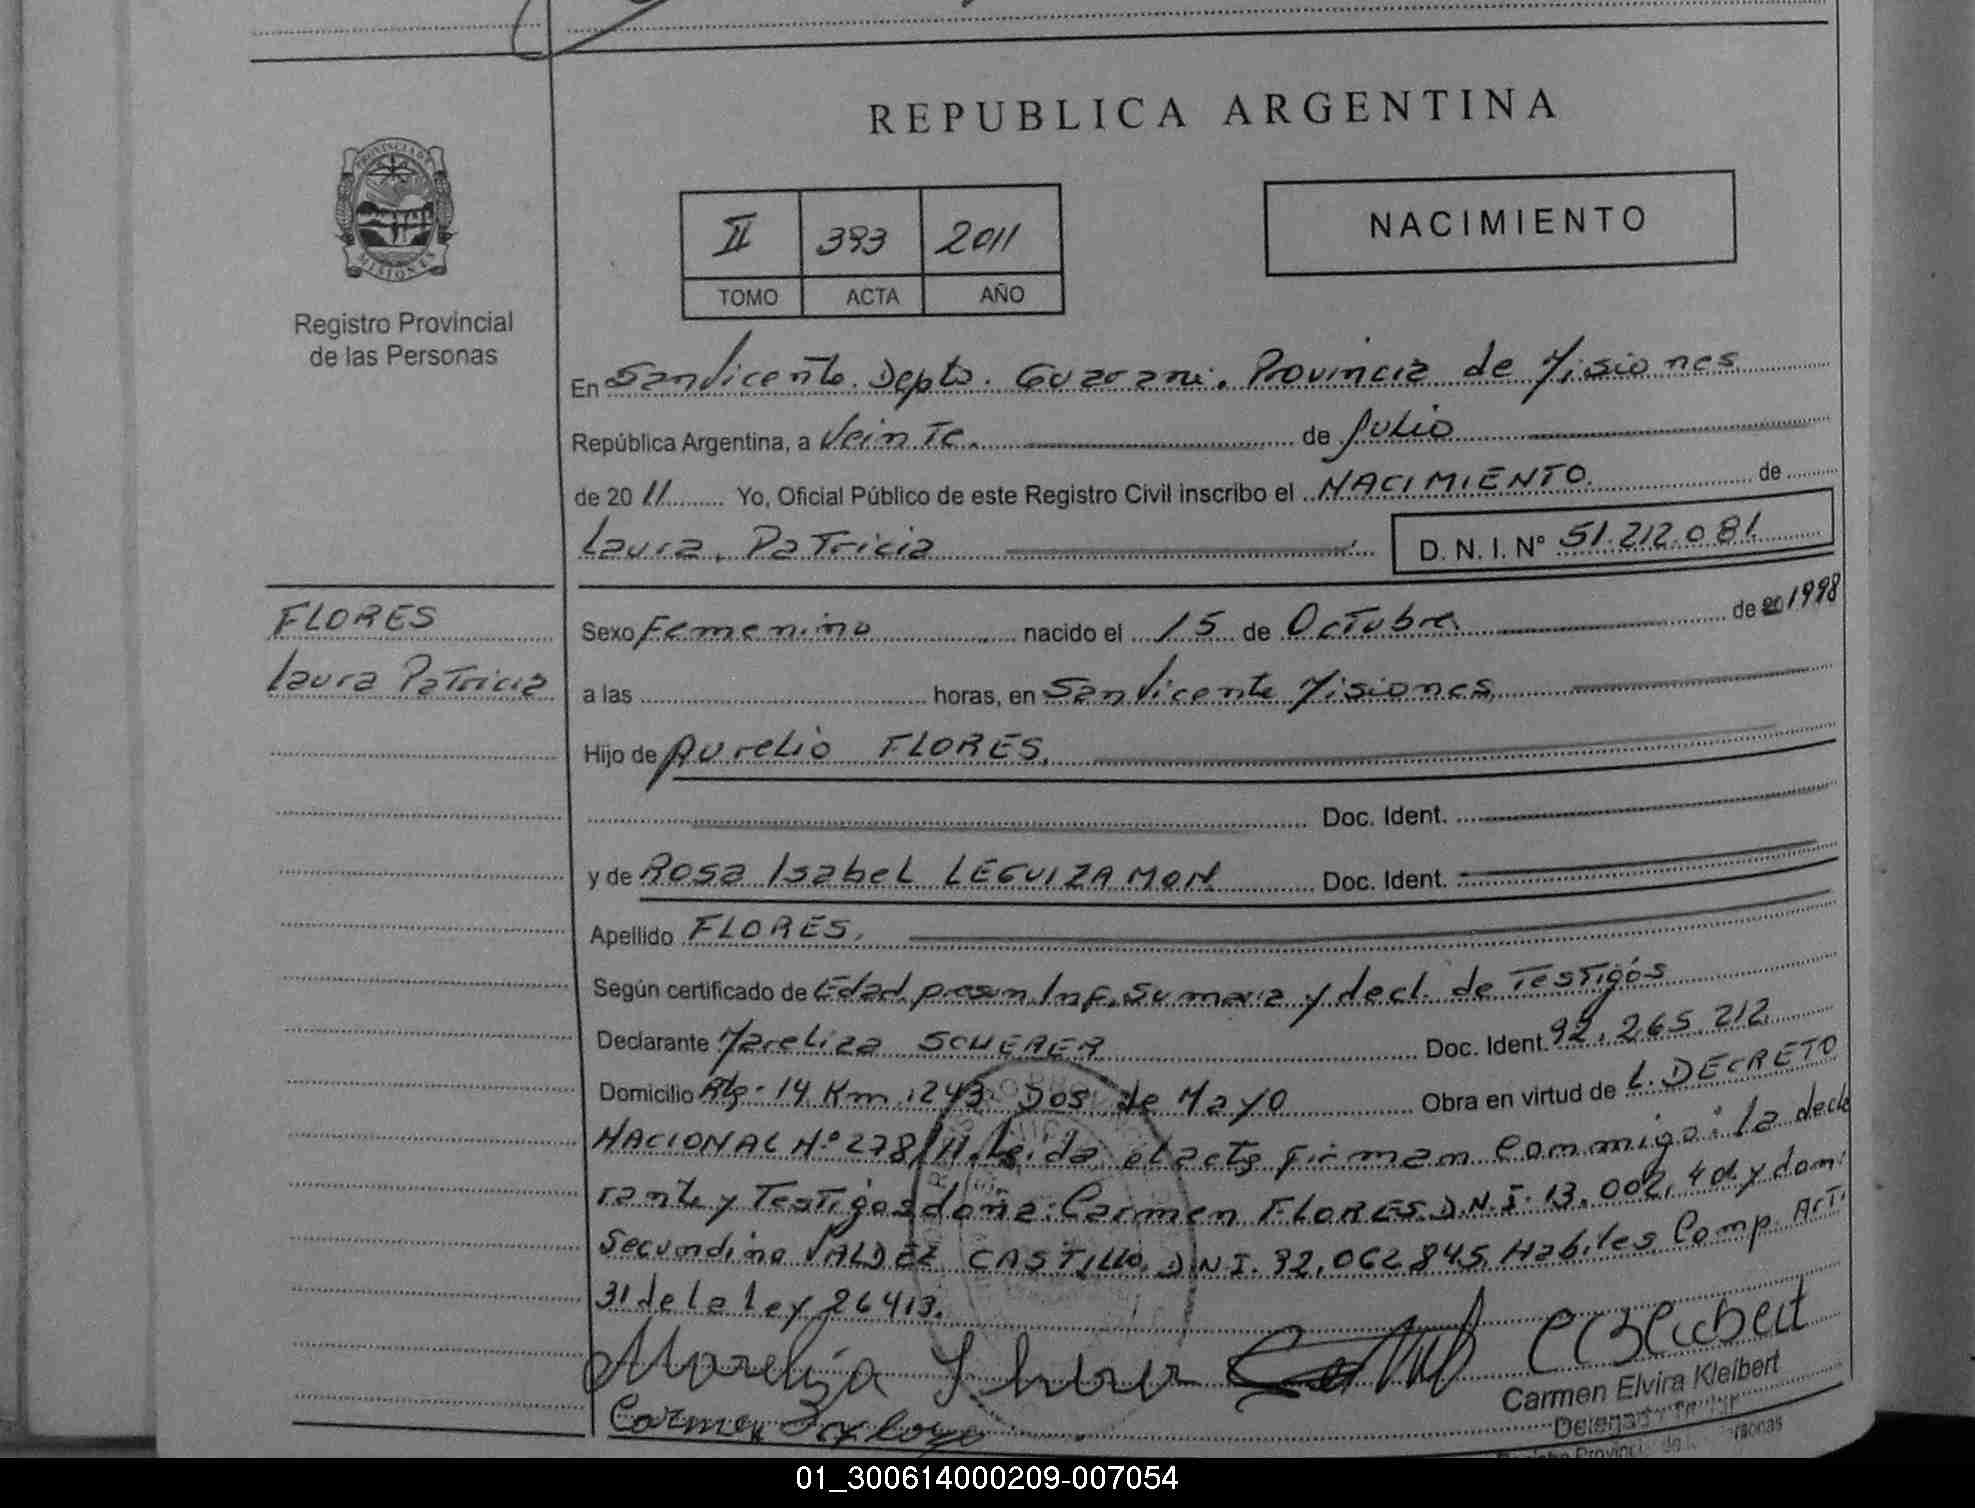 REPUBLICA ARGENTINA
PROVINCIA DE
MISIONES
Registro Provincial
de las Personas
II 393 2011
TOMO ACTA AÑO
NACIMIENTO
En San Vicente. Depto. Guarani. Provincia de Misiones
República Argentina, a Veinte. de Julio
de 20 11 Yo, Oficial Público de este Registro Civil inscribo el NACIMIENTO. de
Laura, Patricia D. N. I. N° 51.212.081
FLORES
Laura Patricia
Sexo Femenino nacido el 15 de Octubre de 20 1998
a las horas, en San Vicente Misiones,
Hijo de Aurelio FLORES,
Doc. Ident.
y de Rosa Isabel LEGUIZAMON Doc. Ident.
Apellido FLORES,
Según certificado de Edad presun. Inf. Sumaria y decl. de Testigos
Declarante Mareliza SCHERER Doc. Ident. 92.265.212
Domicilio 14 Km. 1243 Dos de Mayo Obra en virtud de L. DECRETO
NACIONAL N° 278/11. Leida el acta firman conmigo: la decla
rante y Testigos doña: Carmen FLORES D.N.I. 13.002. y dom:
Secundino VALDEZ CASTILLO. D.N.I. 92.062845. Habiles Comp. Art.
31 de la ley 26413.
Carmen Elvira Kleibert
Delegada Titular
Registro Provincial de las Personas
01_300614000209-007054